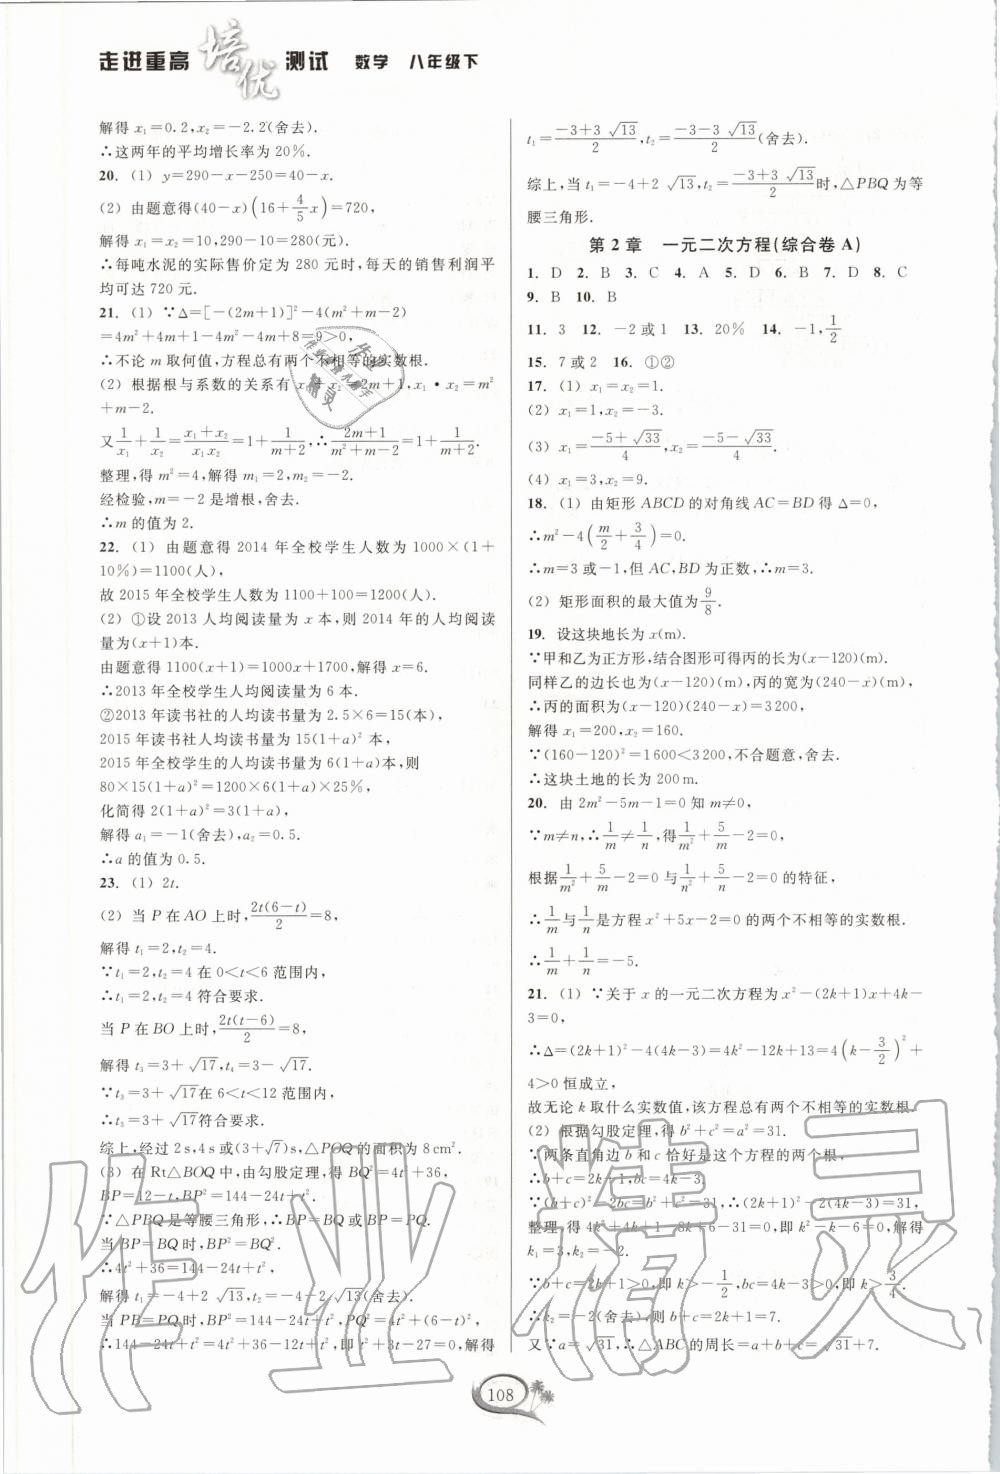 走进重高 培优 测试 数学 八年级下
解得 x₁=0.2,x₂=-2.2(舍去).
∴这两年的平均增长率为 20%.
20. (1) y=290-x-250=40-x.
(2) 由题意得(40-x)(16+4/5x)=720,
解得 x₁=x₂=10,290-10=280(元).
∴每吨水泥的实际售价定为 280 元时,每天的销售利润平
均可达 720 元.
21. (1) ∵Δ=[-(2m+1)]²-4(m²+m-2)
=4m²+4m+1-4m²-4m+8=9>0,
∴不论 m 取何值,方程总有两个不相等的实数根.
(2) 根据根与系数的关系有 x₁+x₂=2m+1,x₁·x₂=m²
+m-2.
又1/x₁+1/x₂=(x₁+x₂)/(x₁x₂)=1+1/(m+2),∴(2m+1)/(m²+m-2)=1+1/(m+2).
整理,得 m²=4,解得 m₁=2,m₂=-2.
经检验,m=-2 是增根,舍去.
∴m 的值为 2.
22. (1) 由题意得 2014 年全校学生人数为 1000×(1+
10%)=1100(人),
故 2015 年全校学生人数为 1100+100=1200(人).
(2) ①设 2013 人均阅读量为 x 本,则 2014 年的人均阅读
量为(x+1)本.
由题意得 1100(x+1)=1000x+1700,解得 x=6.
∴2013 年全校学生人均阅读量为 6 本.
②2013 年读书社的人均读书量为 2.5×6=15(本),
2015 年读书社人均读书量为 15(1+a)² 本,
2015 年全校学生人均读书量为 6(1+a)本,
80×15(1+a)²=1200×6(1+a)×25%,
化简得 2(1+a)²=3(1+a),
解得 a₁=-1(舍去),a₂=0.5.
∴a 的值为 0.5.
23. (1) 2t.
(2) 当 P 在 AO 上时,2t(6-t)/2=8,
解得 t₁=2,t₂=4.
∵t₁=2,t₂=4 在 0<t<6 范围内,
∴t₁=2,t₂=4 符合要求.
当 P 在 BO 上时,2t(t-6)/2=8,
解得 t₃=3+√17,t₄=3-√17.
∵t₃=3+√17在 6<t<12 范围内,
∴t₃=3+√17符合要求.
综上,经过 2 s,4 s 或(3+√7)s,△POQ 的面积为 8 cm².
(3) 在 Rt△BOQ 中,由勾股定理,得 BQ²=4t²+36,
BP=12-t,BP²=144-24t+t².
∵△PBQ 是等腰三角形,∴BP=BQ 或 BP=PQ.
当 BP=BQ 时,BP²=BQ².
∴4t²+36=144-24t+t²,
解得 t₁=-4+2√13,t₂=-4-2√13(舍去).
当 PB=PQ 时,BP²=PQ²,PQ²=4t²+(6-t)²,
∴144-24t+t²=4t²+36-12t+t²,即 t²+3t-27=0,解得
t₁=(-3+3√13)/2,t₂=(-3-3√13)/2(舍去).
综上,当 t₁=-4+2√13,t₂=(-3+3√13)/2时,△PBQ 为等
腰三角形.
第 2 章 一元二次方程(综合卷 A)
1. D 2. B 3. C 4. A 5. D 6. B 7. D 8. C
9. B 10. B
11. 3 12. -2 或 1 13. 20% 14. -1,1/2
15. 7 或 2 16. ①②
17. (1) x₁=x₂=1.
(2) x₁=1,x₂=-3.
(3) x₁=(-5+√33)/4,x₂=(-5-√33)/4.
(4) x₁=3,x₂=9.
18. (1) 由矩形 ABCD 的对角线 AC=BD 得 Δ=0,
∴m²-4(m/2+3/4)=0.
∴m=3 或-1,但 AC,BD 为正数,∴m=3.
(2) 矩形面积的最大值为9/8.
19. 设这块地长为 x(m).
∵甲和乙为正方形,结合图形可得丙的长为(x-120)(m).
同样乙的边长也为(x-120)(m),丙的宽为(240-x)(m),
∴丙的面积为(x-120)(240-x)=3200,
解得 x₁=200,x₂=160.
∵(160-120)²=1600<3200,不合题意,舍去.
∴这块土地的长为 200 m.
20. 由 2m²-5m-1=0 知 m≠0,
∵m≠n,∴1/m≠1/n,得1/m²+5/m-2=0,
根据1/m²+5/m-2=0 与1/n²+5/n-2=0 的特征,
∴1/m与1/n是方程 x²+5x-2=0 的两个不相等的实数根.
∴1/m+1/n=-5.
21. (1) ∵关于 x 的一元二次方程为 x²-(2k+1)x+4k-
3=0,
∴Δ=(2k+1)²-4(4k-3)=4k²-12k+13=4(k-3/2)²+
4>0 恒成立,
故无论 k 取什么实数值,该方程总有两个不相等的实数根.
(2) 根据勾股定理,得 b²+c²=a²=31.
∵两条直角边 b 和 c 恰好是这个方程的两个根,
∴b+c=2k+1,bc=4k-3.
∵(b+c)²-2bc=b²+c²=31,∴(2k+1)²-2(4k-3)=31,
整理,得 4k²+4k+1-8k+6-31=0,即 k²-k-6=0,解得
k₁=3,k₂=-2.
∵b+c=2k+1>0,即 k>-1/2,bc=4k-3>0,即 k>3/4,
∴k₂=-2(舍去),则 b+c=2k+1=7.
又∵a=√31,∴△ABC 的周长=a+b+c=√31+7.
108
作业精灵